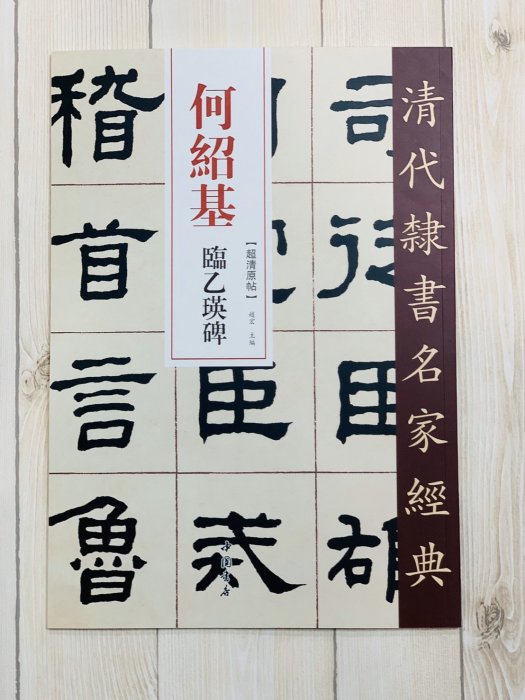 清代隸書名家經典
何紹基
臨乙瑛碑
【超清原帖】
趙宏 主編
司徒臣雄
臣戒
稽首言魯
中國書店